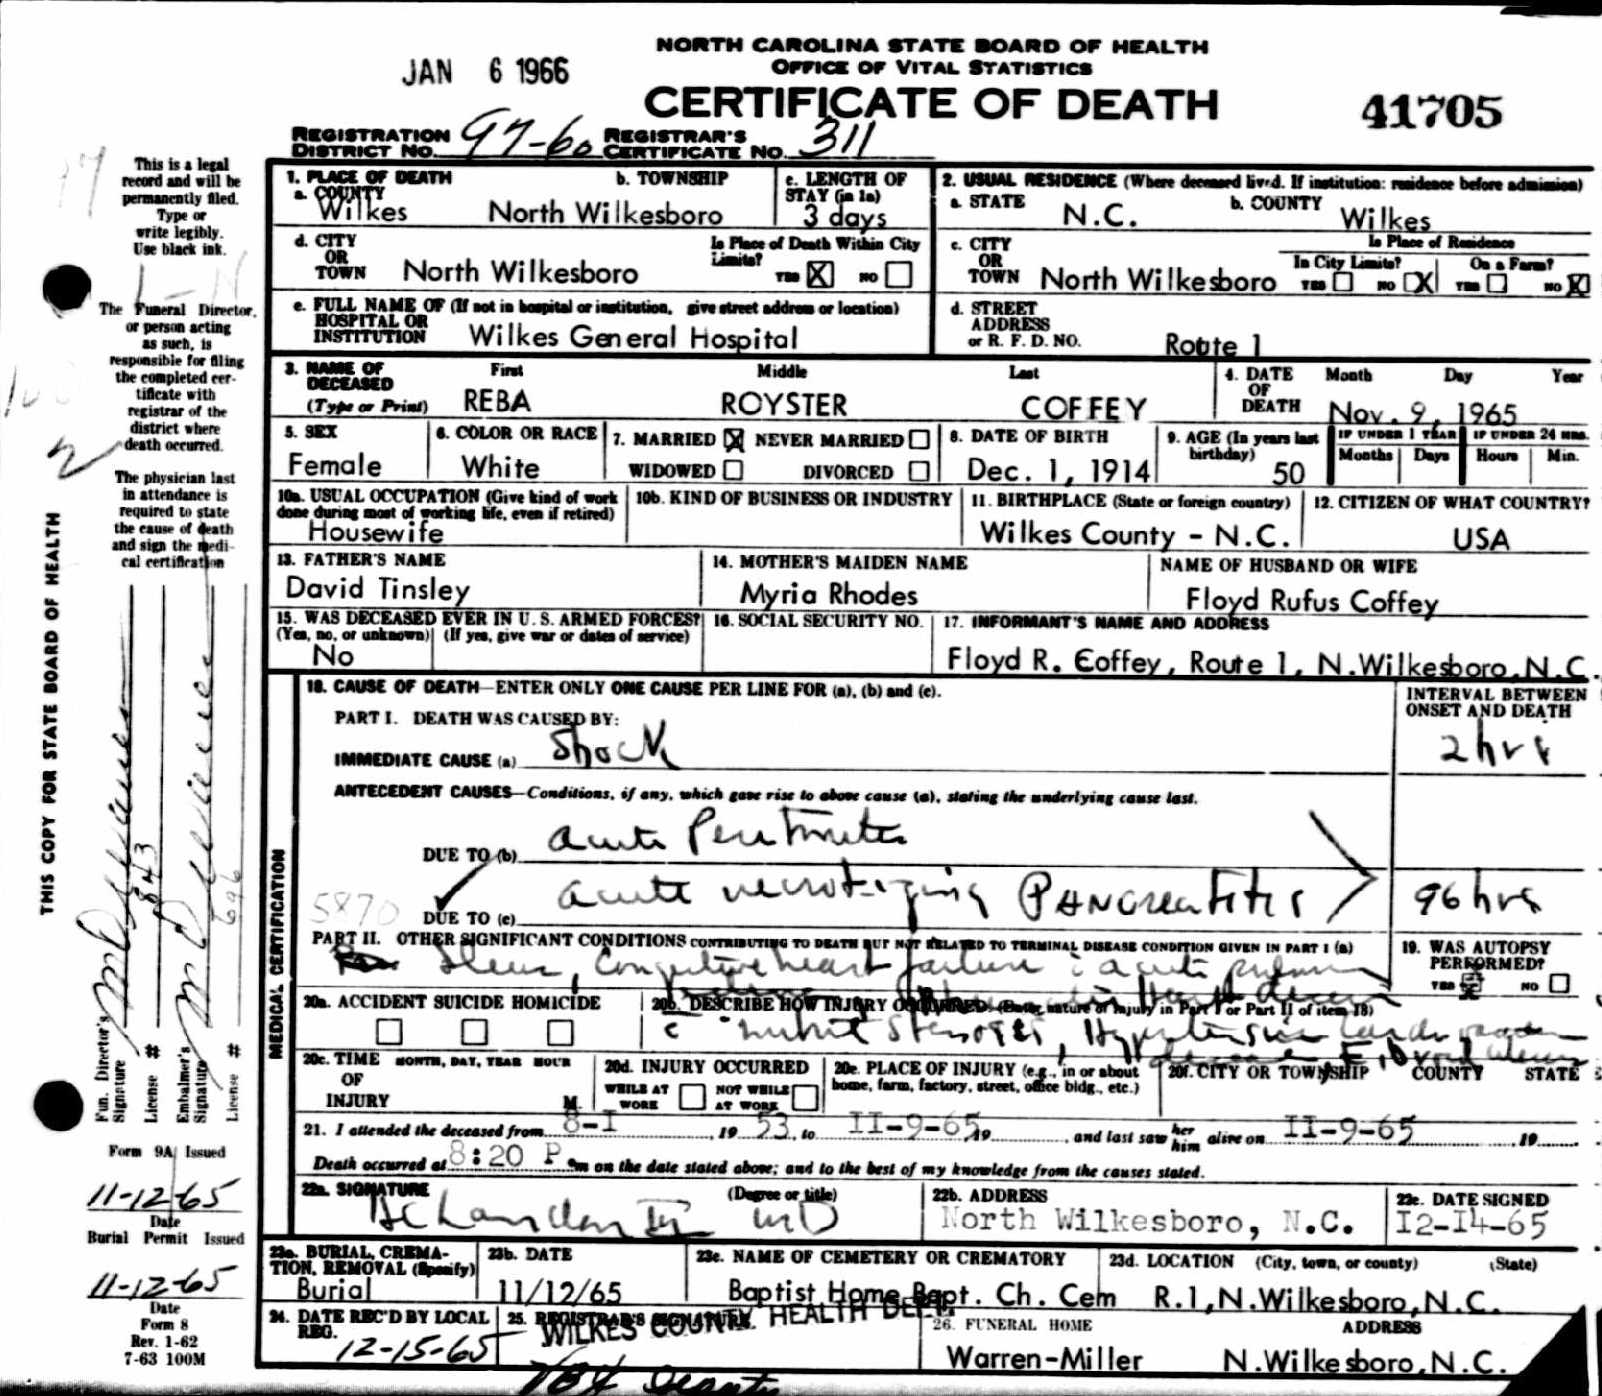 NORTH CAROLINA STATE BOARD OF HEALTH
OFFICE OF VITAL STATISTICS
JAN 6 1966
CERTIFICATE OF DEATH
41705
REGISTRATION DISTRICT NO. 97-60 REGISTRAR'S CERTIFICATE NO. 311
This is a legal
record and will be
permanently filed.
Type or
write legibly.
Use black ink.
The Funeral Director,
or person acting
as such, is
responsible for filing
the completed cer-
tificate with
registrar of the
district where
death occurred.
The physician last
in attendance is
required to state
the cause of death
and sign the medi-
cal certification
THIS COPY FOR STATE BOARD OF HEALTH
Fun. Director's Signature
License # 843
Embalmer's Signature
License # 696
Form 9A Issued
11-12-65
Date
Burial Permit Issued
11-12-65
Date
Form 8
Rev. 1-62
7-63 100M
1. PLACE OF DEATH
a. COUNTY Wilkes
b. TOWNSHIP North Wilkesboro
c. LENGTH OF STAY (in 1a) 3 days
2. USUAL RESIDENCE (Where deceased lived. If institution: residence before admission)
a. STATE N.C.
b. COUNTY Wilkes
d. CITY OR TOWN North Wilkesboro
Is Place of Death Within City Limits? YES X NO
c. CITY OR TOWN North Wilkesboro
Is Place of Residence
In City Limits? YES NO X
On a Farm? YES NO X
e. FULL NAME OF HOSPITAL OR INSTITUTION (If not in hospital or institution, give street address or location)
Wilkes General Hospital
d. STREET ADDRESS or R. F. D. NO. Route 1
3. NAME OF DECEASED (Type or Print)
First REBA Middle ROYSTER Last COFFEY
4. DATE OF DEATH Month Day Year
Nov. 9, 1965
5. SEX Female
6. COLOR OR RACE White
7. MARRIED X NEVER MARRIED
WIDOWED DIVORCED
8. DATE OF BIRTH Dec. 1, 1914
9. AGE (In years last birthday) 50
IF UNDER 1 YEAR Months Days
IF UNDER 24 HRS. Hours Min.
10a. USUAL OCCUPATION (Give kind of work done during most of working life, even if retired)
Housewife
10b. KIND OF BUSINESS OR INDUSTRY
11. BIRTHPLACE (State or foreign country)
Wilkes County - N.C.
12. CITIZEN OF WHAT COUNTRY?
USA
13. FATHER'S NAME
David Tinsley
14. MOTHER'S MAIDEN NAME
Myria Rhodes
NAME OF HUSBAND OR WIFE
Floyd Rufus Coffey
15. WAS DECEASED EVER IN U. S. ARMED FORCES?
(Yes, no, or unknown) (If yes, give war or dates of service)
No
16. SOCIAL SECURITY NO.
17. INFORMANT'S NAME AND ADDRESS
Floyd R. Coffey, Route 1, N.Wilkesboro, N.C.
MEDICAL CERTIFICATION
18. CAUSE OF DEATH—ENTER ONLY ONE CAUSE PER LINE FOR (a), (b) and (c).
INTERVAL BETWEEN ONSET AND DEATH
PART I. DEATH WAS CAUSED BY:
IMMEDIATE CAUSE (a) Shock
2 hrs
ANTECEDENT CAUSES—Conditions, if any, which gave rise to above cause (a), stating the underlying cause last.
DUE TO (b) acute Peritonitis
5870
DUE TO (c) acute necrotizing PANCreatitis
96 hrs
PART II. OTHER SIGNIFICANT CONDITIONS CONTRIBUTING TO DEATH BUT NOT RELATED TO TERMINAL DISEASE CONDITION GIVEN IN PART I (a)
Ileus, Congestive heart failure c acute
c mitral stenosis, Hypertensive
19. WAS AUTOPSY PERFORMED?
YES X NO
20a. ACCIDENT SUICIDE HOMICIDE
20b. DESCRIBE HOW INJURY OCCURRED. (Enter nature of injury in Part I or Part II of item 18)
20c. TIME OF INJURY MONTH, DAY, YEAR HOUR M.
20d. INJURY OCCURRED
WHILE AT WORK NOT WHILE AT WORK
20e. PLACE OF INJURY (e.g., in or about home, farm, factory, street, office bldg., etc.)
20f. CITY OR TOWNSHIP COUNTY STATE
21. I attended the deceased from 8-I, 19 53, to II-9-65, 19, and last saw her him alive on II-9-65 19
Death occurred at 8:20 P .m on the date stated above; and to the best of my knowledge from the causes stated.
22a. SIGNATURE (Degree or title)
MD
22b. ADDRESS
North Wilkesboro, N.C.
22c. DATE SIGNED
I2-I4-65
23a. BURIAL, CREMATION, REMOVAL (Specify)
Burial
23b. DATE
11/12/65
23c. NAME OF CEMETERY OR CREMATORY
Baptist Home Bapt. Ch. Cem
23d. LOCATION (City, town, or county) (State)
R.1, N.Wilkesboro, N.C.
24. DATE REC'D BY LOCAL REG.
12-15-65
25. REGISTRAR'S SIGNATURE
WILKES COUNTY HEALTH DEPT.
26. FUNERAL HOME ADDRESS
Warren-Miller N.Wilkesboro, N.C.